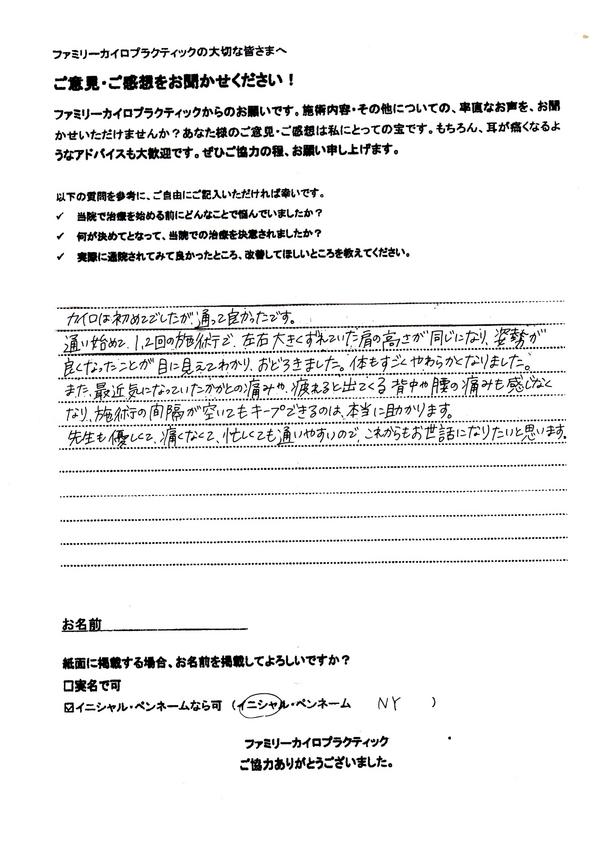 ファミリーカイロプラクティックの大切な皆さまへ
ご意見・ご感想をお聞かせください！
ファミリーカイロプラクティックからのお願いです。施術内容・その他についての、率直なお声を、お聞
かせいただけませんか？あなた様のご意見・ご感想は私にとっての宝です。もちろん、耳が痛くなるよ
うなアドバイスも大歓迎です。ぜひご協力の程、お願い申し上げます。
以下の質問を参考に、ご自由にご記入いただければ幸いです。
✓ 当院で治療を始める前にどんなことで悩んでいましたか？
✓ 何が決めてとなって、当院での治療を決意されましたか？
✓ 実際に通院されてみて良かったところ、改善してほしいところを教えてください。
カイロは初めてでしたが、通って良かったです。
通い始めて、1,2回の施術で、左右大きくずれていた肩の高さが同じになり、姿勢が
良くなったことが目に見えてわかり、おどろきました。体もすごくやわらかくなりました。
また、最近気になっていたかかとの痛みや、疲れると出てくる背中や腰の痛みも感じなく
なり、施術の間隔が空いてもキープできるのは、本当に助かります。
先生も優しくて、痛くなくて、忙しくても通いやすいので、これからもお世話になりたいと思います。
お名前
紙面に掲載する場合、お名前を掲載してよろしいですか？
□実名で可
☑イニシャル・ペンネームなら可（イニシャル・ペンネーム NY ）
ファミリーカイロプラクティック
ご協力ありがとうございました。